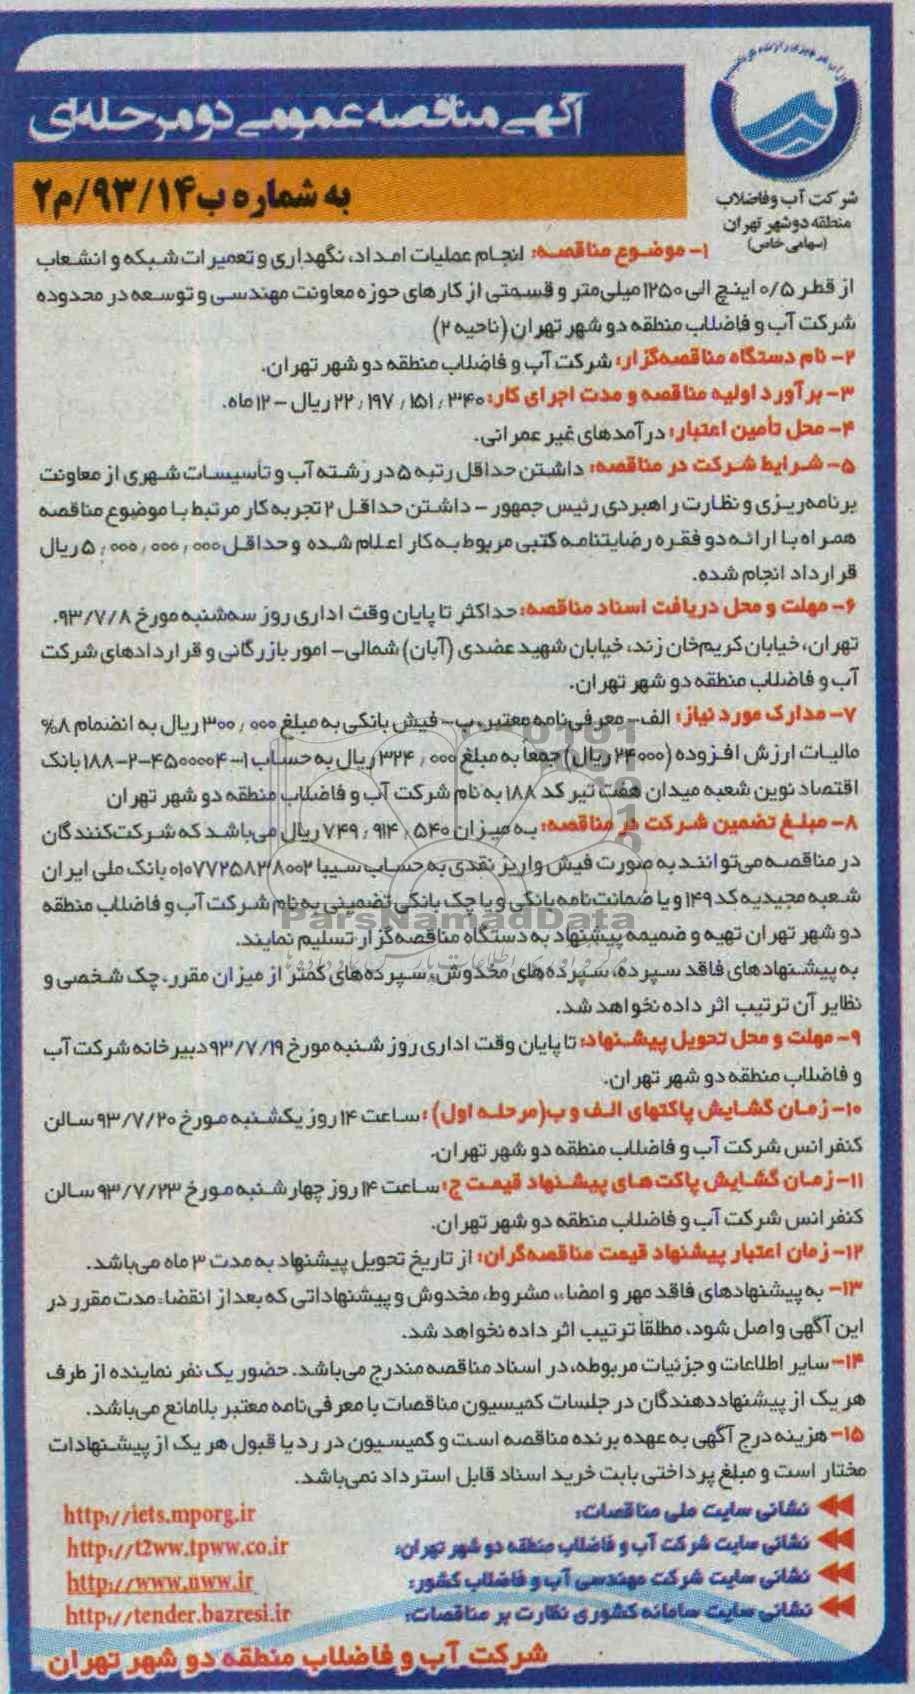 آگهی مناقصه عمومی دو مرحله‌ای
به شماره ب۹۳/۱۴/م۲
شرکت آب و فاضلاب
منطقه دو شهر تهران
(سهامی خاص)
۱- موضوع مناقصه: انجام عملیات امداد، نگهداری و تعمیرات شبکه و انشعاب
از قطر ۰/۵ اینچ الی ۱۲۵۰ میلی‌متر و قسمتی از کارهای حوزه معاونت مهندسی و توسعه در محدوده
شرکت آب و فاضلاب منطقه دو شهر تهران (ناحیه ۲)
۲- نام دستگاه مناقصه‌گزار: شرکت آب و فاضلاب منطقه دو شهر تهران.
۳- برآورد اولیه مناقصه و مدت اجرای کار: ۲۲٫۱۹۷٫۱۵۱٫۳۴۰ ریال - ۱۲ ماه.
۴- محل تأمین اعتبار: درآمدهای غیر عمرانی.
۵- شرایط شرکت در مناقصه: داشتن حداقل رتبه ۵ در رشته آب و تأسیسات شهری از معاونت
برنامه‌ریزی و نظارت راهبردی رئیس جمهور - داشتن حداقل ۲ تجربه کار مرتبط با موضوع مناقصه
همراه با ارائه دو فقره رضایتنامه کتبی مربوط به کار اعلام شده و حداقل ۵٫۰۰۰٫۰۰۰٫۰۰۰ ریال
قرارداد انجام شده.
۶- مهلت و محل دریافت اسناد مناقصه: حداکثر تا پایان وقت اداری روز سه‌شنبه مورخ ۹۳/۷/۸.
تهران، خیابان کریم‌خان زند، خیابان شهید عضدی (آبان) شمالی- امور بازرگانی و قراردادهای شرکت
آب و فاضلاب منطقه دو شهر تهران.
۷- مدارک مورد نیاز: الف- معرفی‌نامه معتبر، ب- فیش بانکی به مبلغ ۳۰۰٫۰۰۰ ریال به انضمام ۸%
مالیات ارزش افزوده (۲۴۰۰۰ ریال) جمعاً به مبلغ ۳۲۴٫۰۰۰ ریال به حساب ۱-۴۵۰۰۰۰۴-۲-۱۸۸ بانک
اقتصاد نوین شعبه میدان هفت تیر کد ۱۸۸ به نام شرکت آب و فاضلاب منطقه دو شهر تهران
۸- مبلغ تضمین شرکت در مناقصه: به میزان ۷۴۹٫۹۱۴٫۵۴۰ ریال می‌باشد که شرکت‌کنندگان
در مناقصه می‌توانند به صورت فیش واریز نقدی به حساب سیبا ۰۱۰۷۷۲۵۸۳۸۰۰۲ بانک ملی ایران
شعبه مجیدیه کد ۱۴۹ و یا ضمانت نامه بانکی و یا چک بانکی تضمینی به نام شرکت آب و فاضلاب منطقه
دو شهر تهران تهیه و ضمیمه پیشنهاد به دستگاه مناقصه‌گزار تسلیم نمایند.
به پیشنهادهای فاقد سپرده، سپرده‌های مخدوش، سپرده‌های کمتر از میزان مقرر، چک شخصی و
نظایر آن ترتیب اثر داده نخواهد شد.
۹- مهلت و محل تحویل پیشنهاد: تا پایان وقت اداری روز شنبه مورخ ۹۳/۷/۱۹ دبیرخانه شرکت آب
و فاضلاب منطقه دو شهر تهران.
۱۰- زمان گشایش پاکتهای الف و ب(مرحله اول): ساعت ۱۴ روز یکشنبه مورخ ۹۳/۷/۲۰ سالن
کنفرانس شرکت آب و فاضلاب منطقه دو شهر تهران.
۱۱- زمان گشایش پاکت‌های پیشنهاد قیمت ج: ساعت ۱۴ روز چهارشنبه مورخ ۹۳/۷/۲۳ سالن
کنفرانس شرکت آب و فاضلاب منطقه دو شهر تهران.
۱۲- زمان اعتبار پیشنهاد قیمت مناقصه‌گران: از تاریخ تحویل پیشنهاد به مدت ۳ ماه می‌باشد.
۱۳- به پیشنهادهای فاقد مهر و امضاء، مشروط، مخدوش و پیشنهاداتی که بعد از انقضاء مدت مقرر در
این آگهی واصل شود، مطلقاً ترتیب اثر داده نخواهد شد.
۱۴- سایر اطلاعات و جزئیات مربوطه، در اسناد مناقصه مندرج می‌باشد. حضور یک نفر نماینده از طرف
هر یک از پیشنهاددهندگان در جلسات کمیسیون مناقصات با معرفی‌نامه معتبر بلامانع می‌باشد.
۱۵- هزینه درج آگهی به عهده برنده مناقصه است و کمیسیون در رد یا قبول هر یک از پیشنهادات
مختار است و مبلغ پرداختی بابت خرید اسناد قابل استرداد نمی‌باشد.
نشانی سایت ملی مناقصات: http://iets.mporg.ir
نشانی سایت شرکت آب و فاضلاب منطقه دو شهر تهران: http://t2ww.tpww.co.ir
نشانی سایت شرکت مهندسی آب و فاضلاب کشور: http://www.nww.ir
نشانی سایت سامانه کشوری نظارت بر مناقصات: http://tender.bazresi.ir
شرکت آب و فاضلاب منطقه دو شهر تهران
ParsNamadData